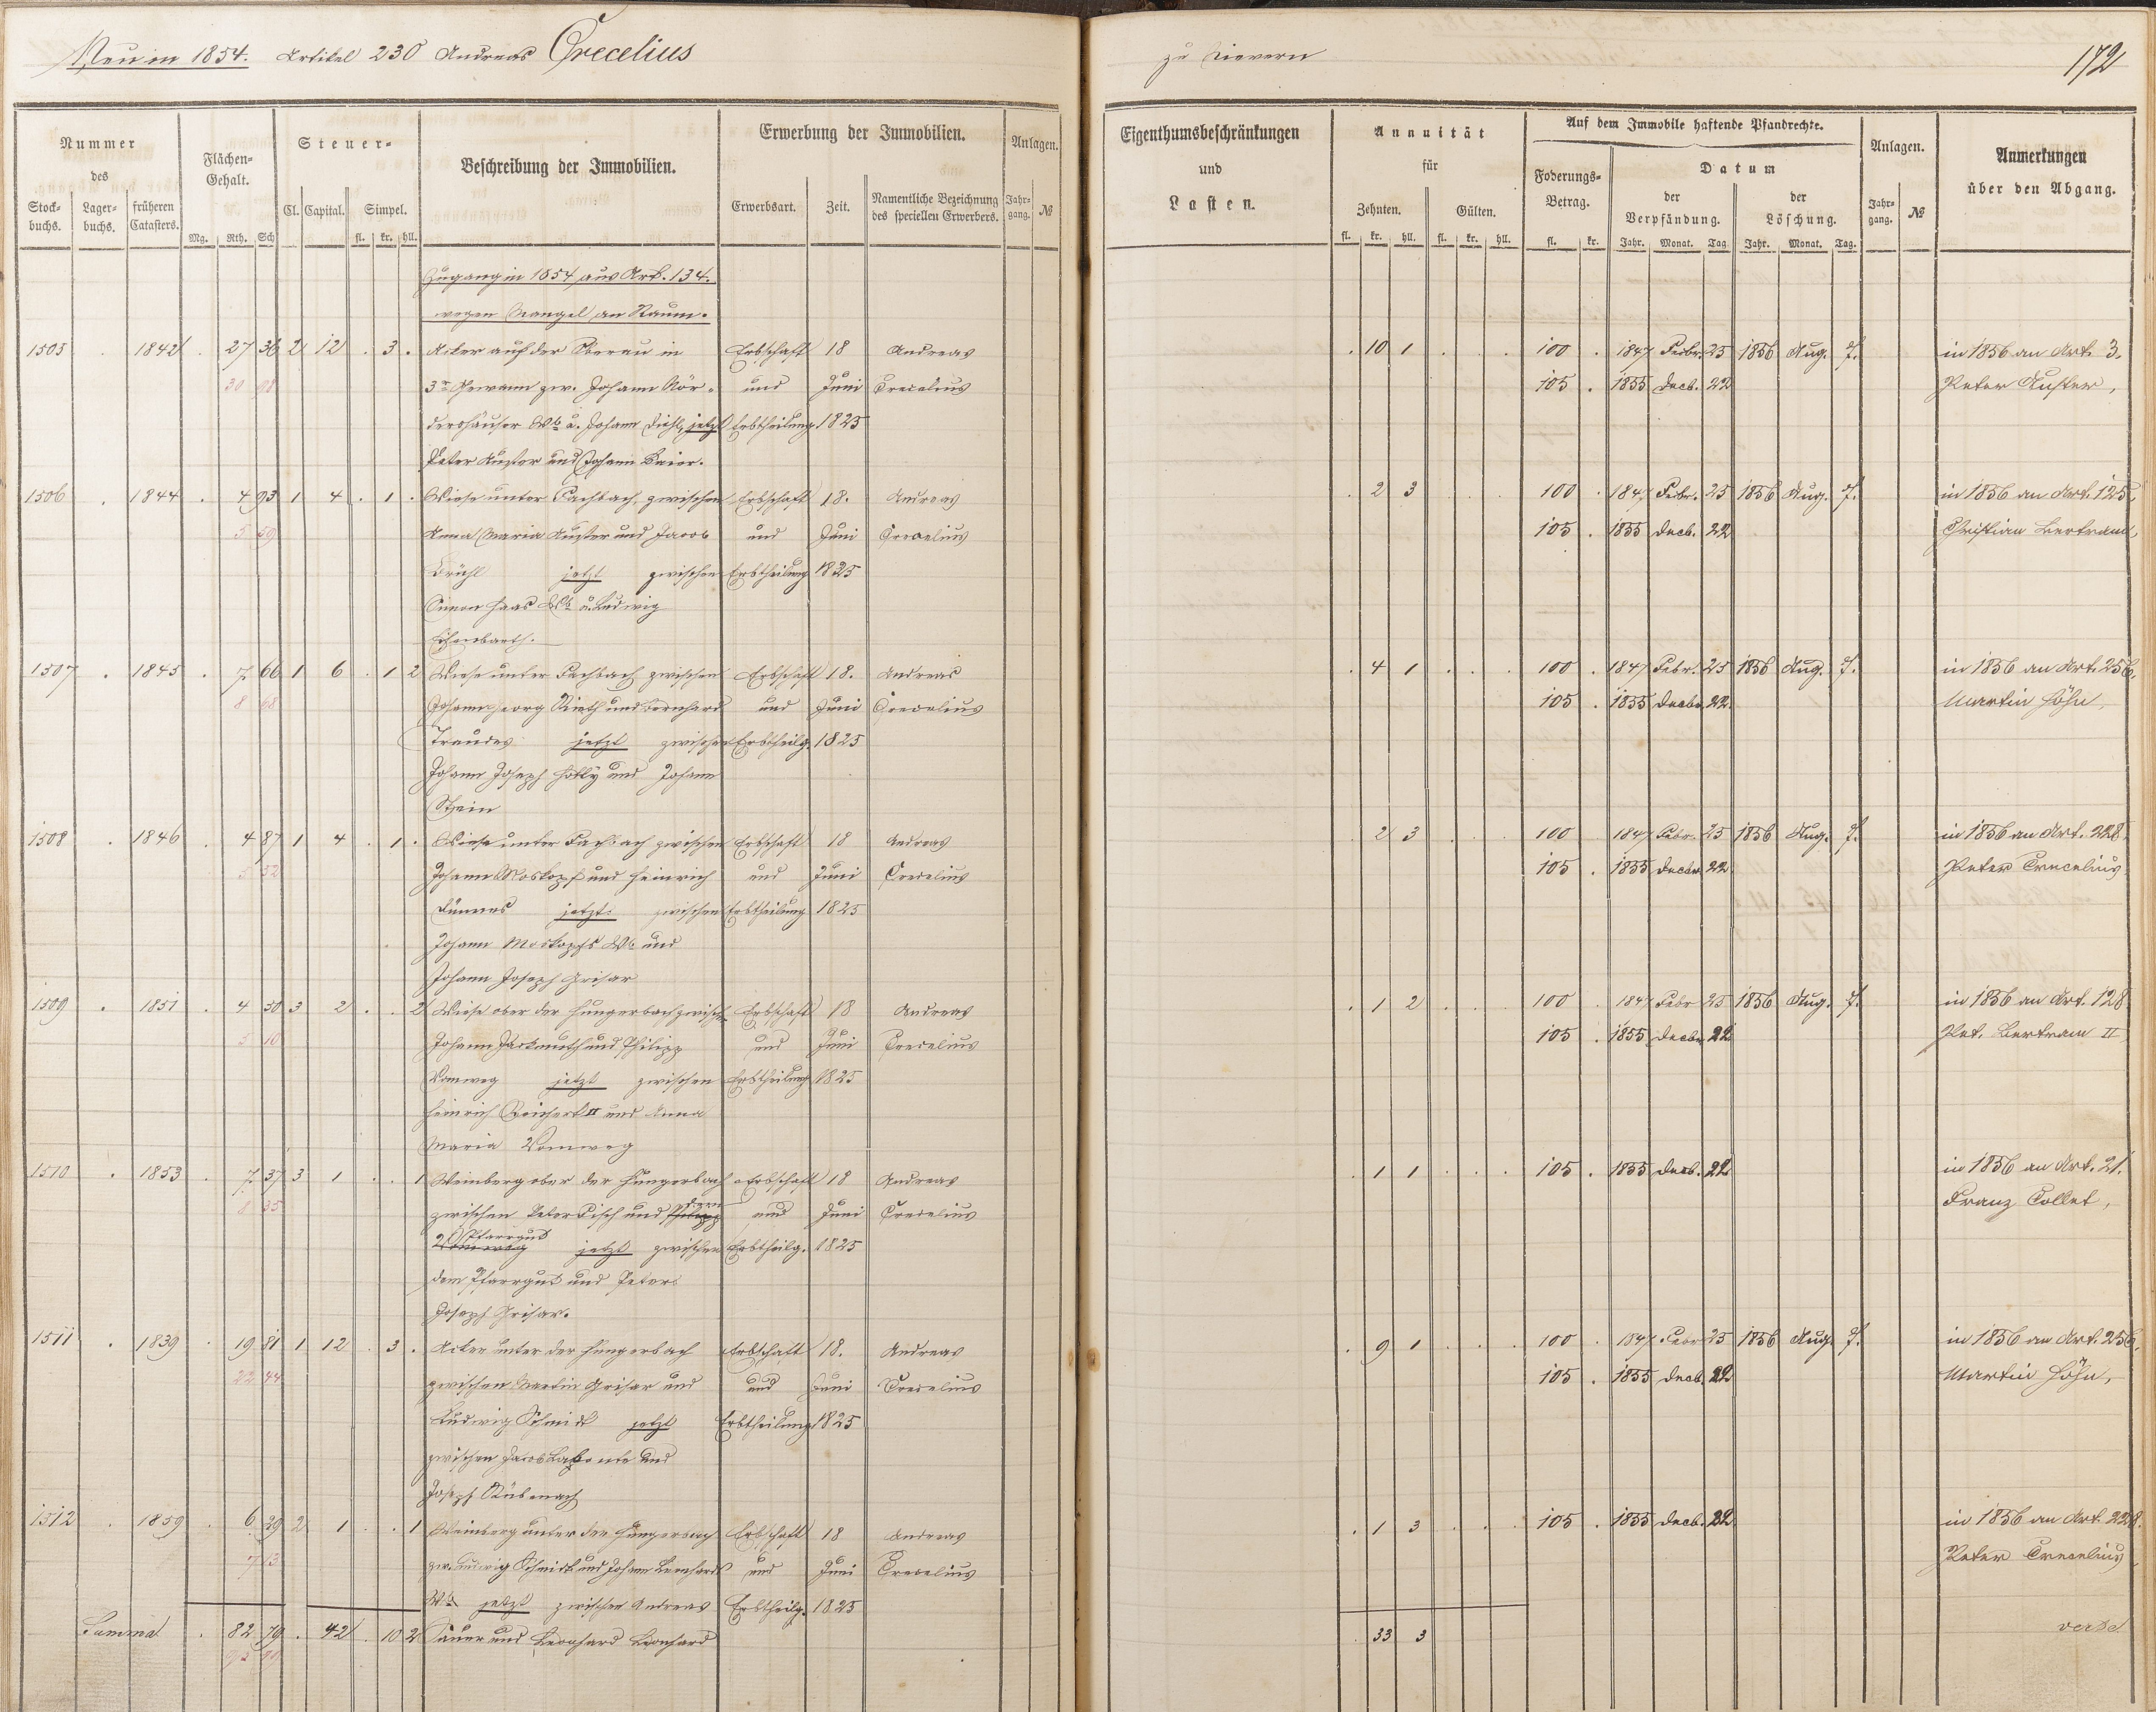 Neu in 1854. Artikel 230 Andreas Crecelius
zu Nievern
172
Nummer des
Stock-buchs. Lager-buchs. früheren Catasters.
Flächen-Gehalt.
Mg. Rth. Sch
Steuer-
Cl. Capital. Simpel.
fl. kr. hll.
Beschreibung der Immobilien.
Erwerbung der Immobilien.
Erwerbsart. Zeit. Namentliche Bezeichnung des speciellen Erwerbers.
Anlagen.
Jahr-gang. №
Eigenthumsbeschränkungen
und
Lasten.
Annuität
für
Zehnten. Gülten.
fl. kr. hll. fl. kr. hll.
Auf dem Immobile haftende Pfandrechte.
Foderungs-Betrag.
fl. kr.
Datum
der Verpfändung. der Löschung.
Jahr. Monat. Tag. Jahr. Monat. Tag.
Anlagen.
Jahr-gang. №
Anmerkungen
über den Abgang.
Zugang in 1854 aus Art. 134.
wegen Mangel an Raum.
1505 . 1842 . 27 36 2 12 . 3 . Acker auf der Oberau in Erbschaft 18 Andreas . 10 1 . . . 100 . 1847 Febr. 25 1856 Aug. 7. in 1856 an Art. 3.
30 98 3r Gewann zw. Johann Kör- und Juni Crecelius 105 . 1855 Decb. 22 Peter Auster,
dershäuser Wb u. Johann Diehl, jetzt Erbtheilung 1825
Peter Auster und Johann Baier.
1506 . 1844 . 4 93 1 4 . 1 . Wiese unter Fachbach, zwischen Erbschaft 18. Andreas . 2 3 . . . 100 . 1847 Febr. 25 1856 Aug. 7. in 1856 an Art. 125,
5 59 Anna Maria Auster und Jacob und Juni Crecelius 105 . 1855 Decb. 22 Christian Bertram,
Brühl jetzt zwischen Erbtheilung 1825
Simon Haas Wb u. Ludwig
Eisenbarth.
1507 . 1845 . 7 66 1 6 . 1 2 Wiese unter Fachbach zwischen Erbschaft 18. Andreas . 4 1 . . . 100 . 1847 Febr. 25 1856 Aug. 7. in 1856 an Art. 256,
8 68 Johann Georg Rieth und Bernhard und Juni Crecelius 105 . 1855 Decbr. 22 Martin Höhn,
Traudes jetzt zwischen Erbtheilg. 1825
Johann Joseph Hölly und Johann
Stein
1508 . 1846 . 4 87 1 4 . 1 . Wiese unter Fachbach zwischen Erbschaft 18 Andreas . 2 3 . . . 100 1847 Febr. 25 1856 Aug. 7. in 1856 an Art. 228
5 52 Johann Moskopf und Heinrich und Juni Crecelius 105 . 1855 Decbr. 22 Peter Crecelius
jetzt zwischen Erbtheilung 1825
Johann Moskopfs Wb und
Johann Joseph Grisar
1509 . 1851 . 4 50 3 2 . . 2 Wiese ober der Hungerbach zwisch. Erbschaft 18 Andreas . 1 2 . . . 100 . 1847 Febr 25 1856 Aug. 7. in 1856 an Art. 128
5 10 Johann Jackmuth und Philipp und Juni Crecelius 105 . 1855 Decbr. 22 Pet. Bertram II
Vomweg jetzt zwischen Erbtheilung 1825
Heinrich Reichert II und Anna
Maria Vomweg
1510 . 1853 . 7 37 3 1 . . 1 Weinberg ober der Hungerbach Erbschaft 18 Andreas . 1 1 . . . 105 . 1855 Decb. 22 in 1856 an Art. 21.
8 35 zwischen Peter Fisch und Philipp dem und Juni Crecelius Franz Collet,
Vomweg Pfarrgut jetzt zwischen Erbtheilg. 1825
dem Pfarrgut und Peter
Joseph Grisar.
1511 . 1839 . 19 81 1 12 . 3 . Acker unter der Hungerbach Erbschaft 18. Andreas . 9 1 . . . 100 . 1847 Febr 25 1856 Aug. 7. in 1856 an Art. 256,
22 44 zwischen Martin Grisar und und Juni Crecelius 105 . 1855 Decb. 22 Martin Höhn,
Ludwig Schmidt jetzt Erbtheilung 1825
zwischen Jacob und
Joseph Rübenach
1512 . 1859 . 6 29 2 1 . . 1 Weinberg unter der Hungerbach Erbschaft 18 Andreas . 1 3 . . . 105 . 1855 Decb. 22 in 1856 an Art. 228.
7 13 zw. Ludwig Schmidt und Johann Leonhards und Juni Crecelius Peter Crecelius
Wb jetzt zwischen Andreas Erbtheilg. 1825
Summa . 82 79 . 42 . 10 2 Sauer und Leonhard Leonhard . 33 3 verte